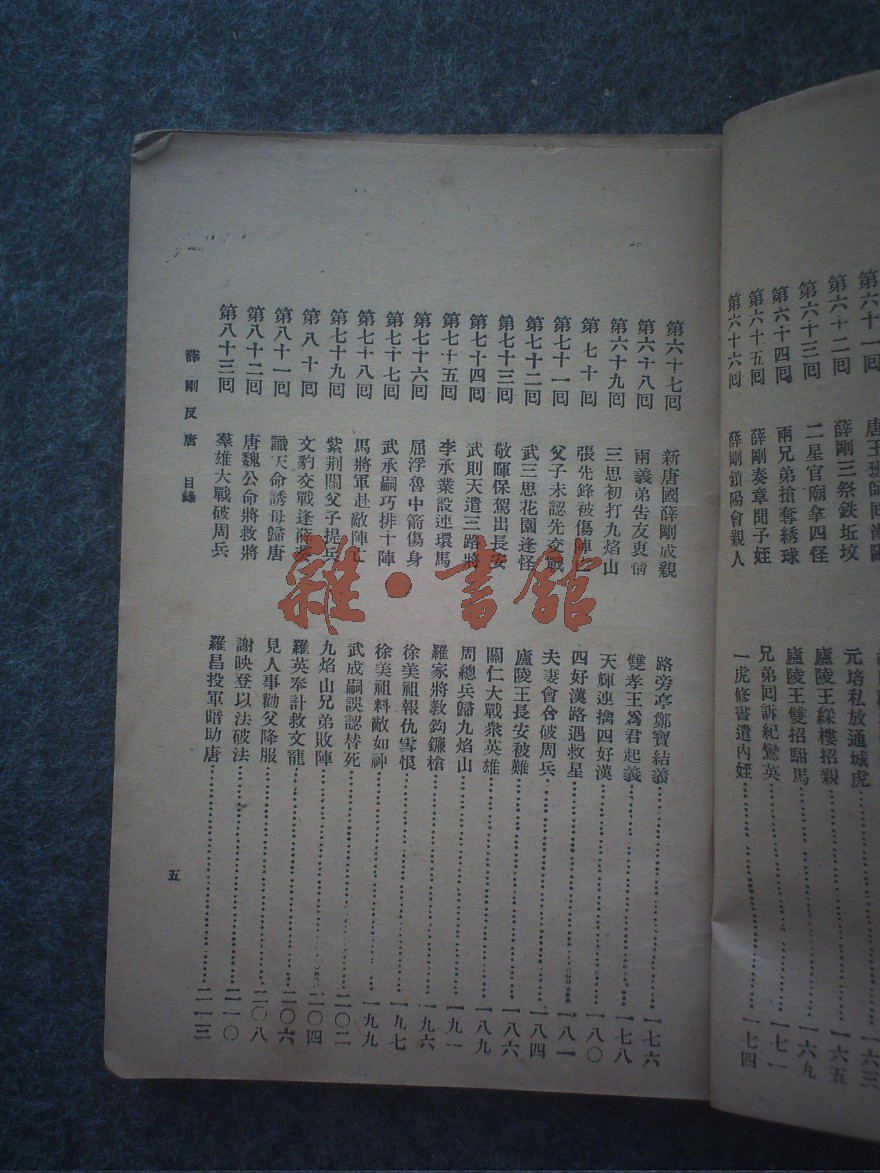 第六十一回 唐王班師回
第六十二回 薛剛三祭鉄坵墳 元培私放通城虎 一六五
第六十三回 二星官廟拿四怪 廬陵王綵樓招親 一六九
第六十四回 兩兄弟搶奪綉球 廬陵王雙招駙馬
第六十五回 薛剛奏章聞子姪 兄弟回訴紀鸞英 一七一
第六十六回 薛剛鎖陽會親人 一虎修書遣內姪 一七四
第六十七回 新唐國薛剛成親 路旁亭鄭寶結義 一七六
第六十八回 兩義弟告友衷情 雙孝王爲君起義 一七八
第六十九回 三思初打九焰山 天輝連擒四好漢 一八〇
第七十回 張先鋒被傷 四好漢路遇救星 一八一
第七十一回 父子未認先交戰 夫妻會合破周兵 一八四
第七十二回 武三思花園逢怪 廬陵王長安被難 一八六
第七十三回 敬暉保駕出長安 關仁大戰衆英雄 一八九
第七十四回 武則天遣三路將 周總兵歸九焰山 一九一
第七十五回 李承業設連環馬 羅家將教鈎鐮槍 一九六
第七十六回 屈浮魯中箭傷身 徐美祖報仇雪恨 一九七
第七十七回 武承嗣巧排十陣 徐美祖料敵如神 一九九
第七十八回 馬將軍赴敵陣亡 武成嗣誤認替死 二〇二
第七十九回 紫荆關父子提兵 九焰山兄弟敗陣 二〇四
第八十回 文豹交戰逢薛 羅英奉計救文龍 二〇六
第八十一回 識天命誘母歸唐 見人事勸父降服 二〇八
第八十二回 唐魏公命將救將 謝映登以法破法 二一〇
第八十三回 羣雄大戰破周兵 羅昌投軍暗助唐 二一三
薛剛反唐 目錄
五
雜·書館